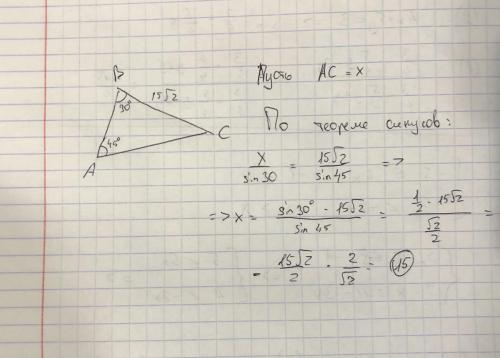 B
15√2
30°
C
45°
A
Пусть AC = x
По теореме синусов:
x/sin30 = 15√2/sin45 =>
=> x = sin30° · 15√2/sin45 = (1/2 · 15√2)/(√2/2) =
= 15√2/2 · 2/√2 = 15